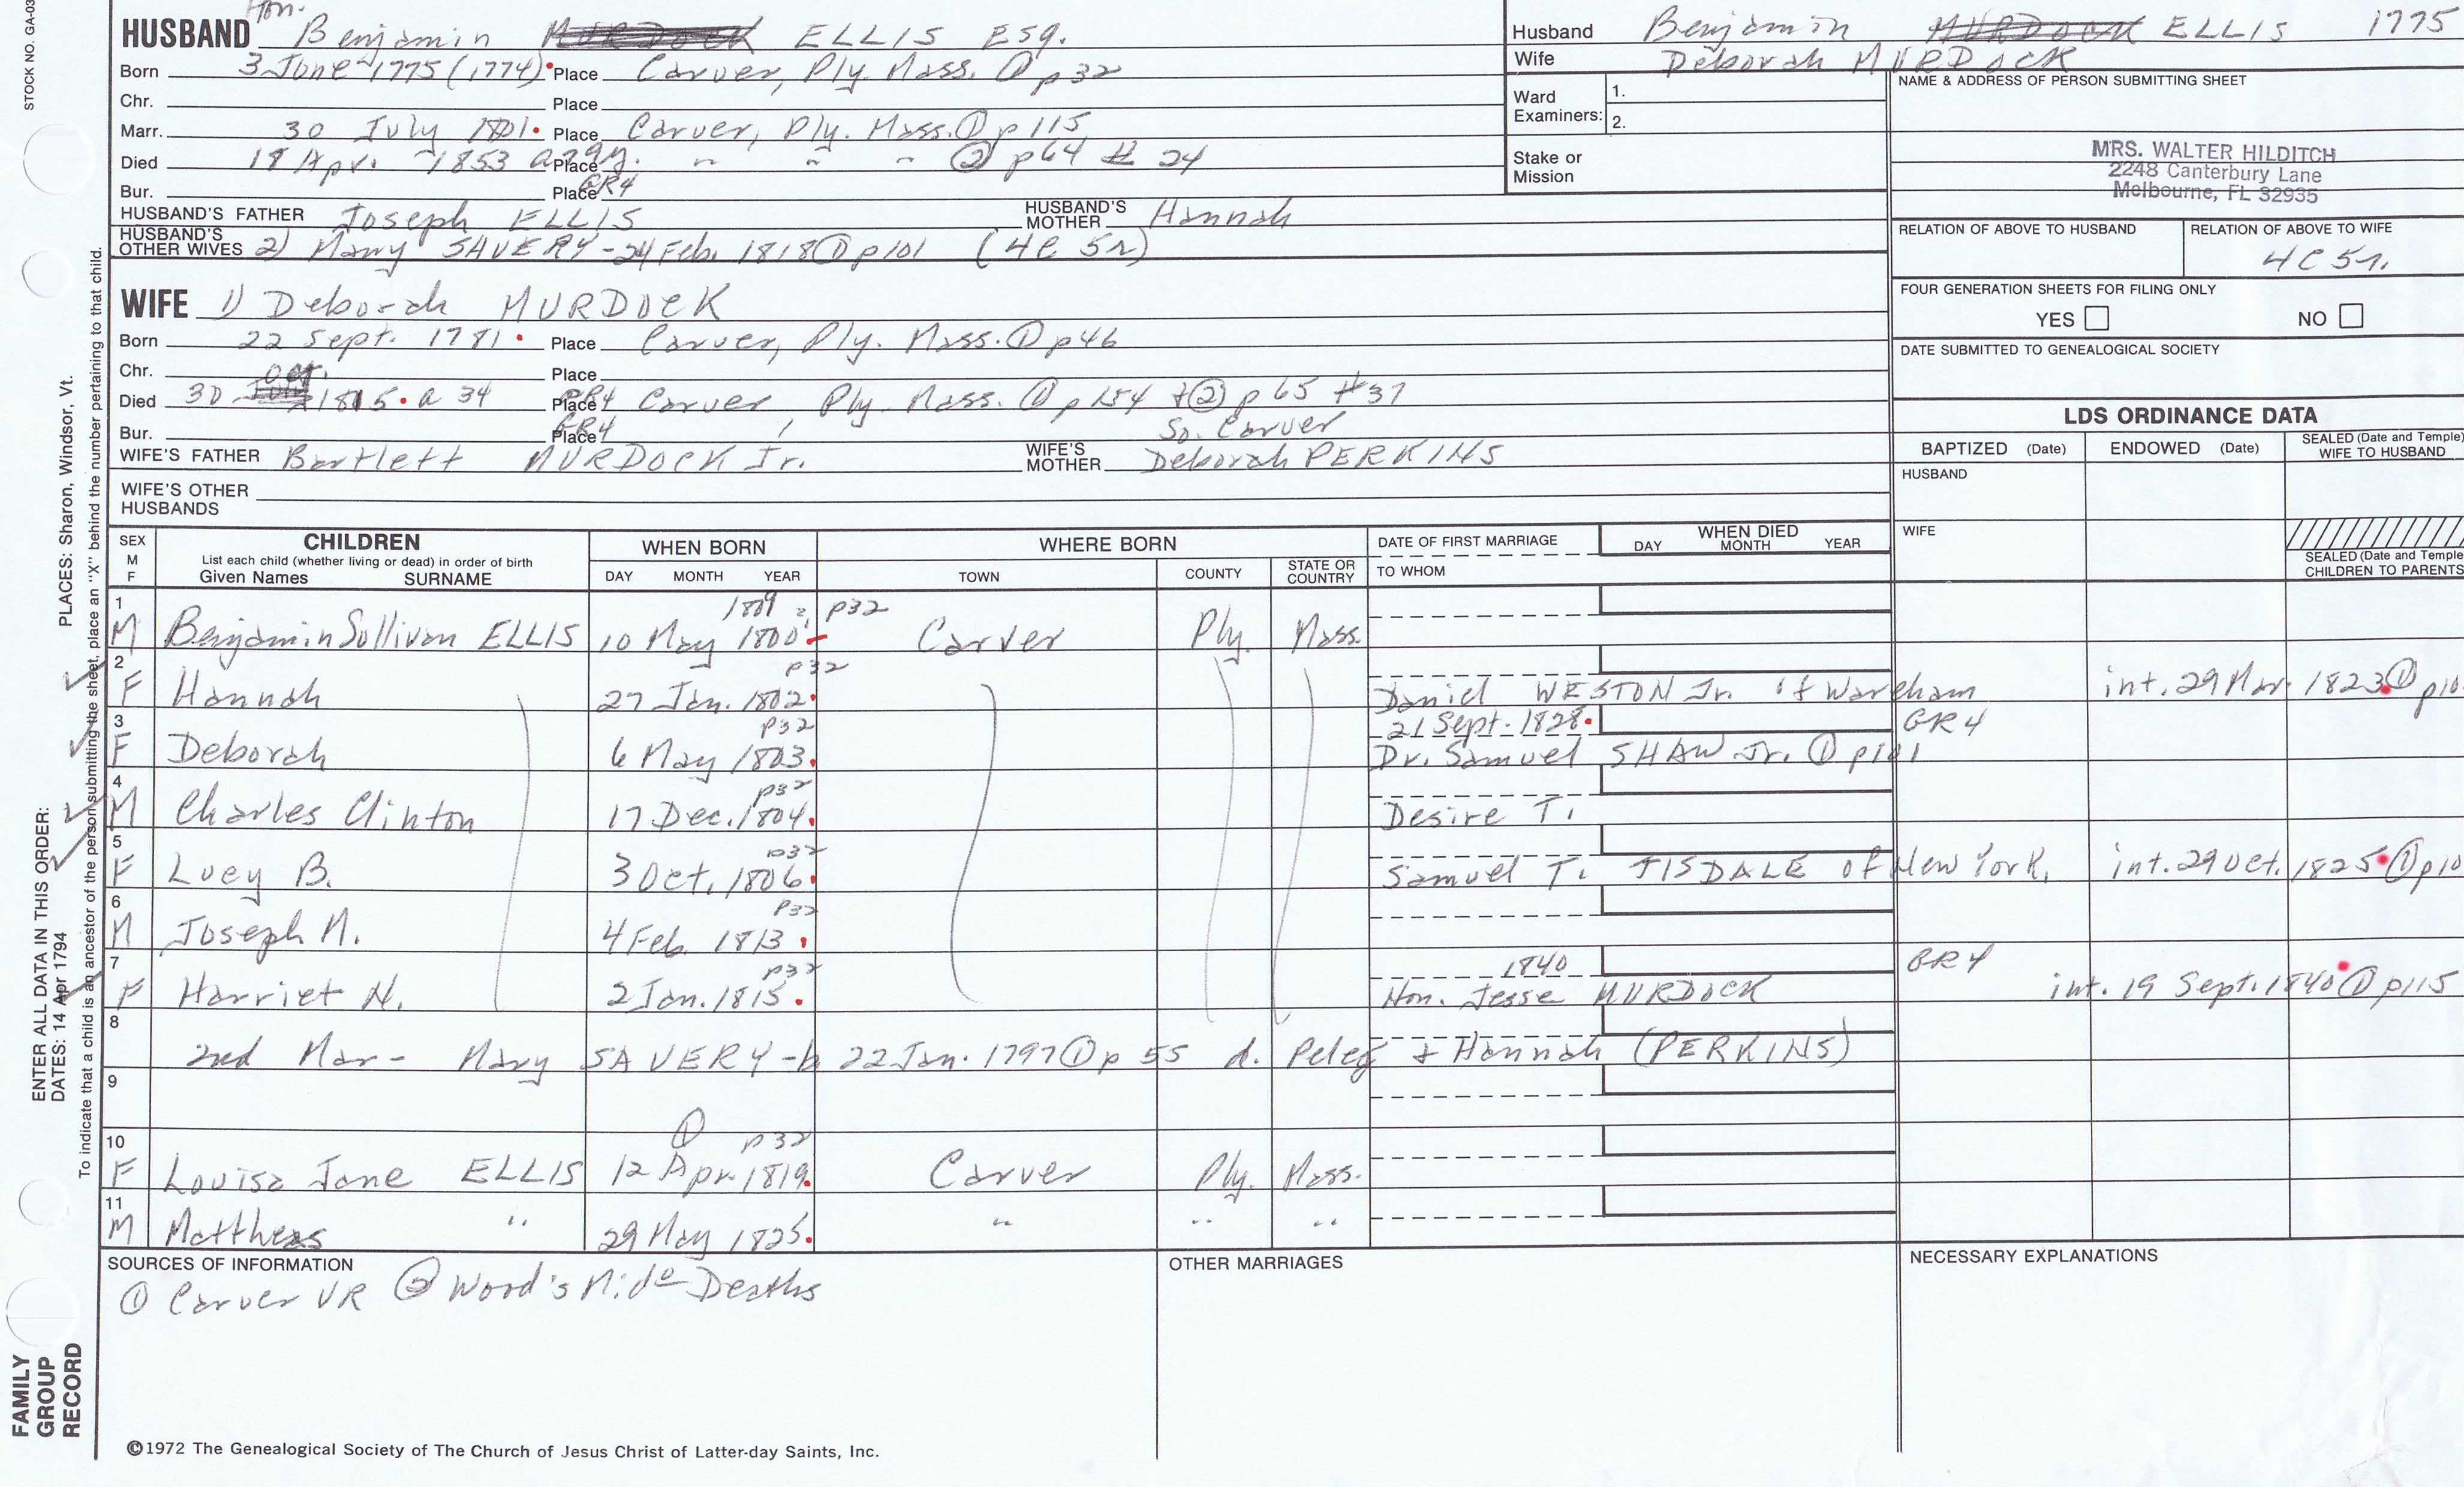 STOCK NO. GA-03
Hon.
HUSBAND Benjamin MURDOCK ELLIS ESq.
Born 3 June 1775 (1774) Place Carver, Ply. Mass. ① p32
Chr. Place
Marr. 30 July 1801 Place Carver, Ply. Mass. ① p115
Died 18 Apr. 1853 a 79y. Place " " " ② p64 # 24
Bur. Place GR4
HUSBAND'S FATHER Joseph ELLIS HUSBAND'S MOTHER Hannah
HUSBAND'S OTHER WIVES 2) Mary SAVERY - 24 Feb. 1818 ① p101 (4C 5r)
WIFE 1) Deborah MURDOCK
Born 22 Sept. 1781 Place Carver, Ply. Mass. ① p46
Chr. Place
Oct.
Died 30 1815 a 34 Place GR4 Carver Ply. Mass. ① p154 + ② p65 #37
Bur. Place GR4 So. Carver
WIFE'S FATHER Bartlett MURDOCK Jr. WIFE'S MOTHER Deborah PERKINS
WIFE'S OTHER HUSBANDS
Husband Benjamin MURDOCK ELLIS 1775
Wife Deborah MURDOCK
Ward Examiners: 1.
2.
Stake or Mission
NAME & ADDRESS OF PERSON SUBMITTING SHEET
MRS. WALTER HILDITCH
2248 Canterbury Lane
Melbourne, FL 32935
RELATION OF ABOVE TO HUSBAND RELATION OF ABOVE TO WIFE
4C 5r.
FOUR GENERATION SHEETS FOR FILING ONLY
YES NO
DATE SUBMITTED TO GENEALOGICAL SOCIETY
LDS ORDINANCE DATA
BAPTIZED (Date) ENDOWED (Date) SEALED (Date and Temple) WIFE TO HUSBAND
HUSBAND
WIFE
SEALED (Date and Temple CHILDREN TO PARENTS
SEX M F CHILDREN WHEN BORN WHERE BORN DATE OF FIRST MARRIAGE WHEN DIED
List each child (whether living or dead) in order of birth
Given Names SURNAME DAY MONTH YEAR TOWN COUNTY STATE OR COUNTRY TO WHOM DAY MONTH YEAR
1809 p32
1 M Benjamin Sullivan ELLIS 10 May 1800 Carver Ply. Mass.
p32
2 F Hannah 27 Jan. 1802 Daniel WESTON Jr. of Wareham int. 29 Mar. 1823 ① p10
p32 21 Sept. 1828 GR4
3 F Deborah 6 May 1803 Dr. Samuel SHAW Jr. ① p101
p32
4 M Charles Clinton 17 Dec. 1804 Desire T.
p32
5 F Lucy B. 3 Oct. 1806 Samuel T. TISDALE of New York, int. 29 Oct. 1825 ① p10
p32
6 M Joseph M. 4 Feb. 1813
p32 1840 GR4
7 F Harriet N. 2 Jan. 1815 Hon. Jesse MURDOCK int. 19 Sept. 1840 ① p115
8 2nd Mar - Mary SAVERY - b 22 Jan. 1797 ① p 55 d. Peleg + Hannah (PERKINS)
9
① p32
10 F Louisa Jane ELLIS 12 Apr. 1819 Carver Ply. Mass.
11 M Matthews " 29 May 1825 " " "
SOURCES OF INFORMATION
① Carver VR ② Wood's Mide Deaths
OTHER MARRIAGES
NECESSARY EXPLANATIONS
©1972 The Genealogical Society of The Church of Jesus Christ of Latter-day Saints, Inc.
PLACES: Sharon, Windsor, Vt.
ENTER ALL DATA IN THIS ORDER:
DATES: 14 Apr 1794
To indicate that a child is an ancestor of the person submitting the sheet, place an "X" behind the number pertaining to that child.
FAMILY
GROUP
RECORD